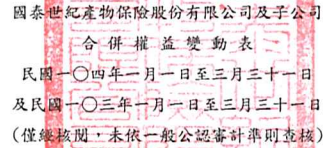 國泰世紀產物保險股份有限公司及子公司
合併權益變動表
民國一〇四年一月一日至三月三十一日
及民國一〇三年一月一日至三月三十一日
(僅經核閱，未依一般公認審計準則查核)